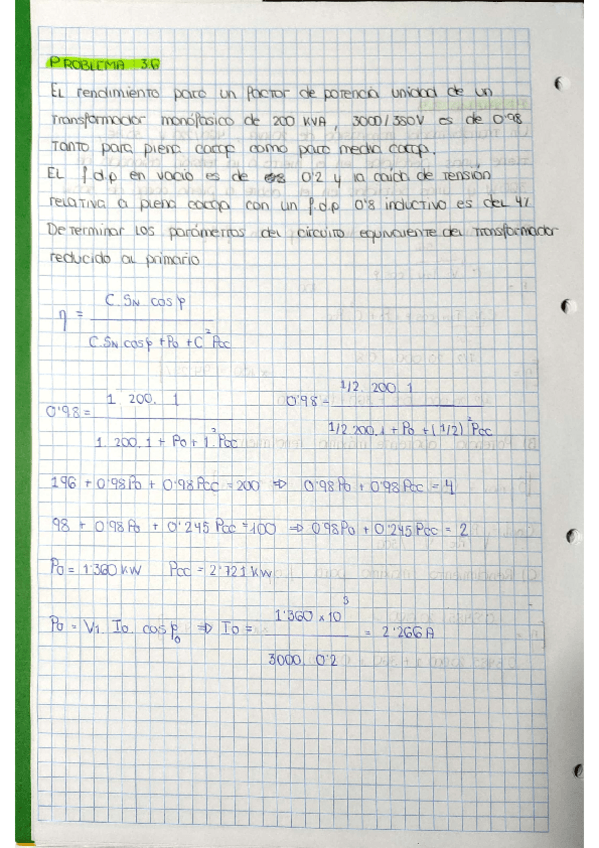 PROBLEMA 3.A
EL rendimiento para un factor de potencia unidad de un
transformador monófasico de 200 KVA, 3000/380V es de 0'98
Tanto para plena carga como para media carga.
EL f.d.p en vacío es de 0'2 y la caída de tensión
relativa a plena carga con un f.d.p 0'8 inductivo es del 4%
Determinar los parámetros del circuito equivalente del transformador
reducido al primario
η = C.SN cosφ / C.SN cosφ + P0 + C²Pcc
0'98 = 1. 200. 1 / 1. 200. 1 + P0 + 1²Pcc
0'98 = 1/2. 200. 1 / 1/2 200. 1 + P0 + (1/2)²Pcc
196 + 0'98P0 + 0'98Pcc = 200 ⇒ 0'98P0 + 0'98Pcc = 4
98 + 0'98P0 + 0'245Pcc = 100 ⇒ 0'98P0 + 0'245Pcc = 2
P0 = 1'360 KW Pcc = 2'721 KW
P0 = V1. I0. cosφ0 ⇒ I0 = 1'360 x 10³ / 3000. 0'2 = 2'266A